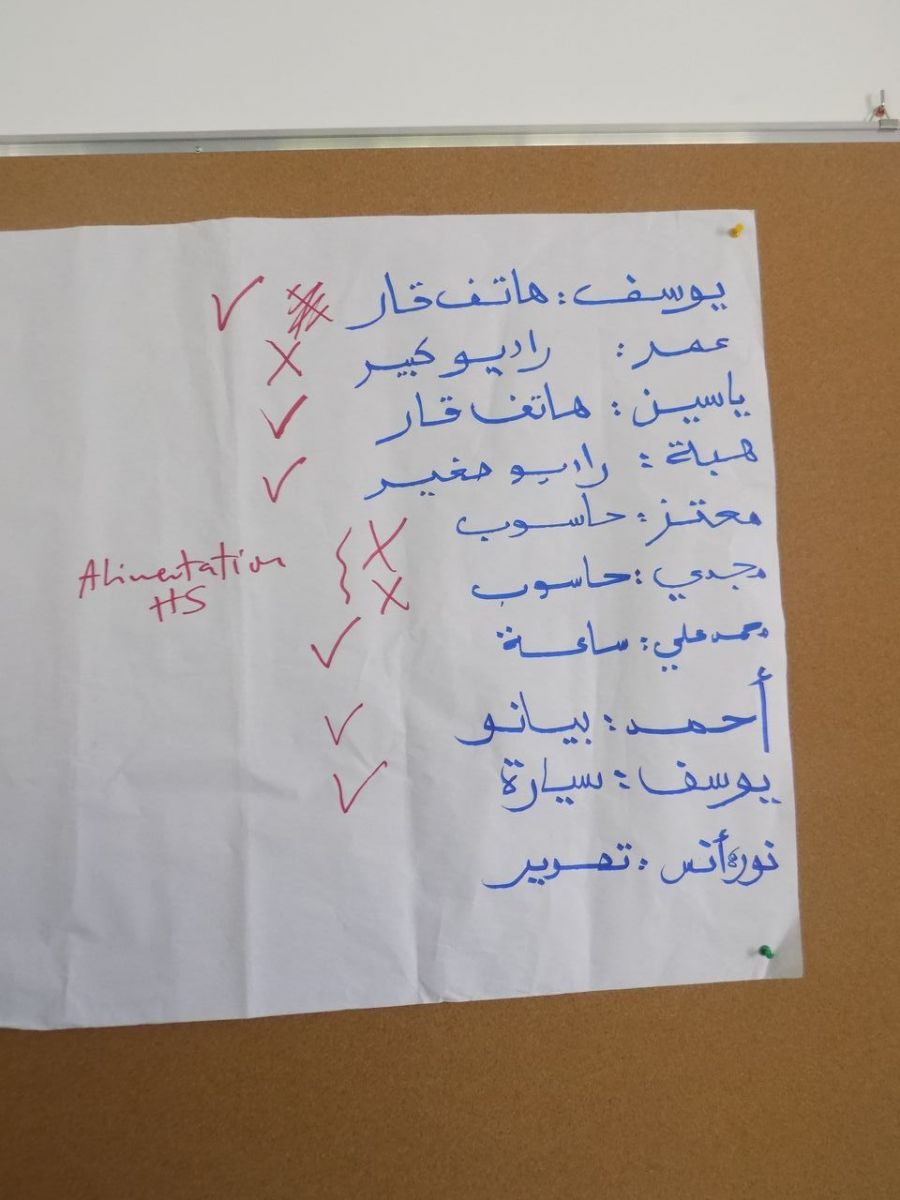 يوسف : هاتف قار
عمر : راديو كبير
ياسين : هاتف قار
هبة : راديو صغير
معتز : حاسوب
مجدي : حاسوب
Alimentation
HS
محمد علي : ساعة
أحمد : بيانو
يوسف : سيارة
نورة أنس : تصوير